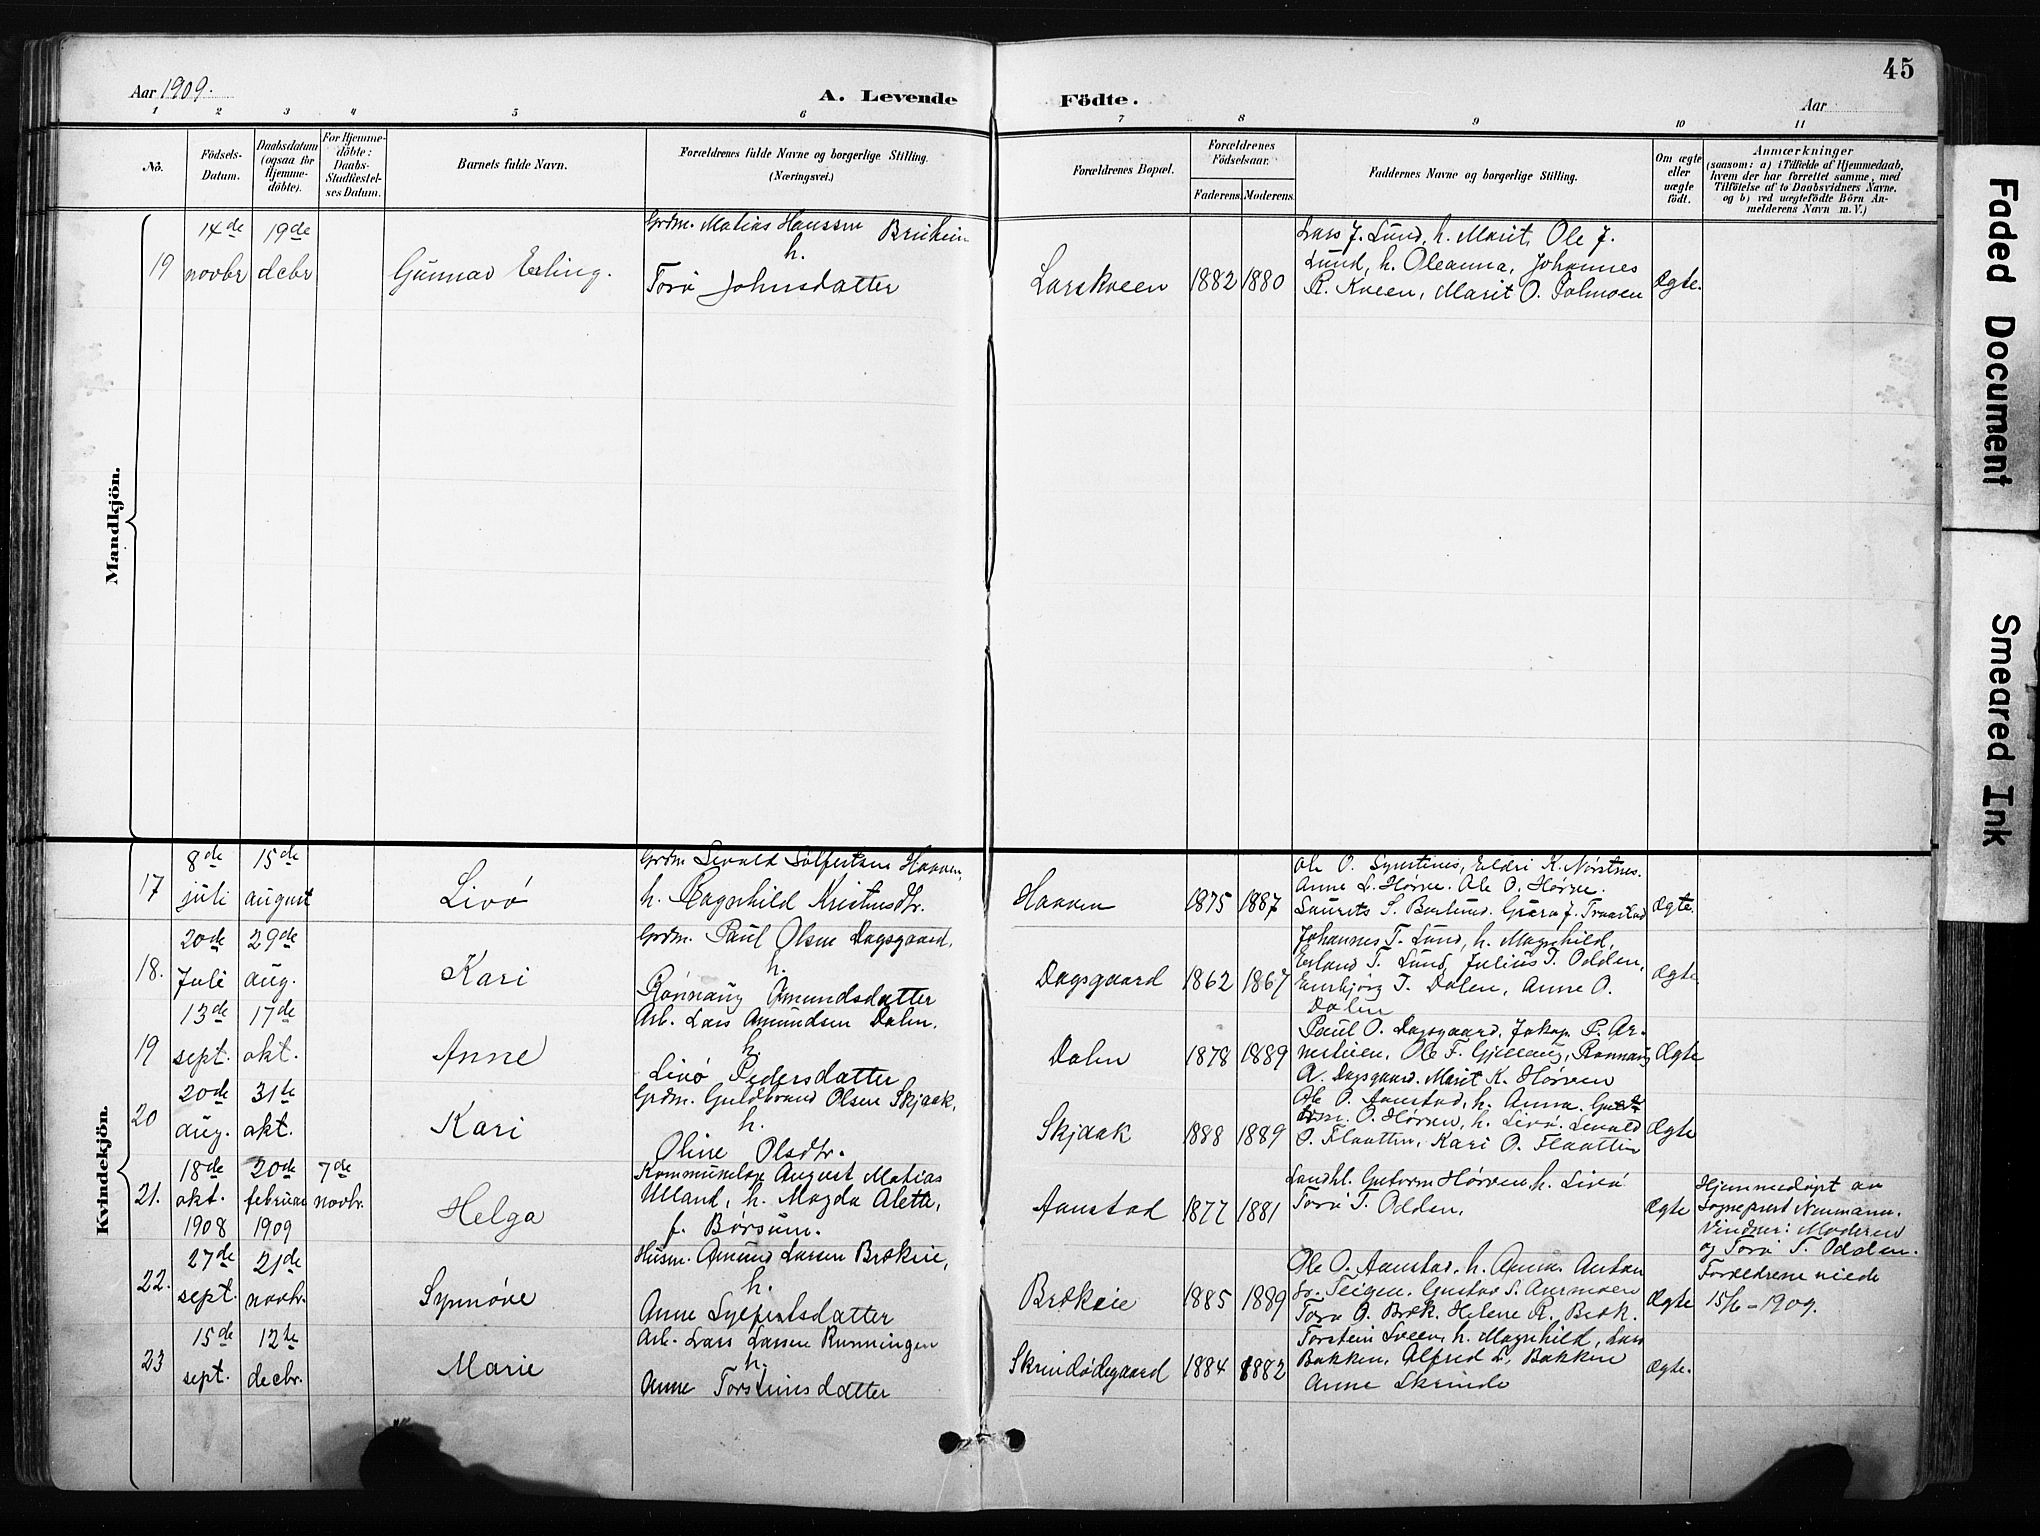 45
Aar 1909.
A. Levende Födte.
Aar
1 2 3 4 5 6 7 8 9 10 11
No.
Födsels-Datum.
Daabsdatum (ogsaa for Hjemme-döbte).
For Hjemme-döbte: Daabs-Stadfæstel-ses Datum.
Barnets fulde Navn.
Forældrenes fulde Navne og borgerlige Stilling.
(Næringsvei.)
Forældrenes Bopæl.
Forældrenes Födselsaar.
Faderens. Moderens.
Faddernes Navne og borgerlige Stilling.
Om ægte eller uægte födt.
Anmærkninger
(saasom: a) i Tilfælde af Hjemmedaab,
hvem der har forrettet samme, med
Tilföielse af to Daabsvidners Navne.
og b) ved uægtefödte Börn An-
melderens Navn m. V.)
Mandkjön.
19
14de novbr
19de debr
Gunnar Erling.
Grdm. Matias Hanssen Bruheim
h.
Torø Johnsdatter
Larskveen
1882 1880
Lars J. Lund, h. Marit, Ole J.
Lund, h. Oleanna, Johannes
R. Kveen, Marit O. Solmoen
Ægte.
Kvindekjön.
17
8de juli
15de august
Livø
Grdm. Sevald Haaven,
h. Ragnhild
Haaven
1875 1887
Ole O. Eldri K.
Anne L. Hørve. Ole O. Hørve.
S.
Ægte.
18.
20de Juli
29de aug.
Kari
Grdm. Paul Olsen Dagsgaard,
h.
Rønnaug Amundsdatter
Dagsgaard
1862 1867
Johannes T. Lund, h. Magnhild,
Erland T. Lund, Julius T. Odden,
T. Dalen, Anne O.
Dalen
Ægte.
19
13de sept.
17de okt.
Anne
Arb. Lars Amundsen Dalen,
h.
Livø Pedersdatter
Dalen
1878 1889
Paul O. Dagsgaard, Jakop P. Ar-
Ole F. Rønnaug
A. Dagsgaard. Marit K. Hørven
Ægte
20
20de aug.
31te okt.
Kari
Grdm. Guldbrand Olsen Skjaak,
h.
Oline Olsdtr.
Skjaak
1888 1889
Ole O. Aanstad, h. Anna.
O. Hørven, h. Livø. Sevald
O. Flaatten, Kari O. Flaatten
Ægte
21.
18de okt. 1908
20de februar 1909
7de novbr.
Helga
August Matias
Ulland, h. Magda Alette,
f. Børsum.
Aanstad
1877 1881
Landhl. Hørven, h. Livø
Torø T. Odden,
Ægte
Hjemmedøpt av
sogneprest Neumann.
Vidner: Moderen
og Torø T. Odden.
Forældrene viede
15/6 - 1909.
22.
27de sept.
21de novbr.
Synnøve
Husm. Amund Larsen Brækeie,
h.
Anne
Brækeie
1885 1889
Ole O. Aanstad, h. Anna. Anton
Teigen. Gustav S. Aurmoen
Torø O. Bræk. Helene R. Bræk.
Ægte
23
15de sept.
12te decbr.
Marie
Arb. Lars Larsen Runningen
h.
Anne Torsteinsdatter
Skrindødegaard
1884 1882
Torstein Sveen, h. Magnhild, Lars
Bakken, Alfred L. Bakken
Anne Skrinde
Ægte.
Faded Document
Smeared Ink